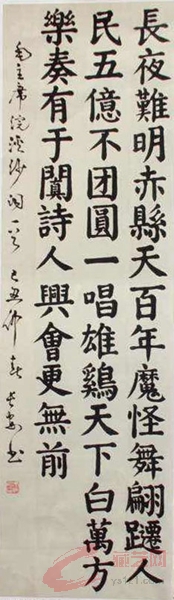 長夜難明赤縣天百年魔怪舞翩躚人
民五億不团圓一唱雄鷄天下白萬方
樂奏有于闐詩人興會更無前
毛主席浣溪沙词一首 己丑仲春 书